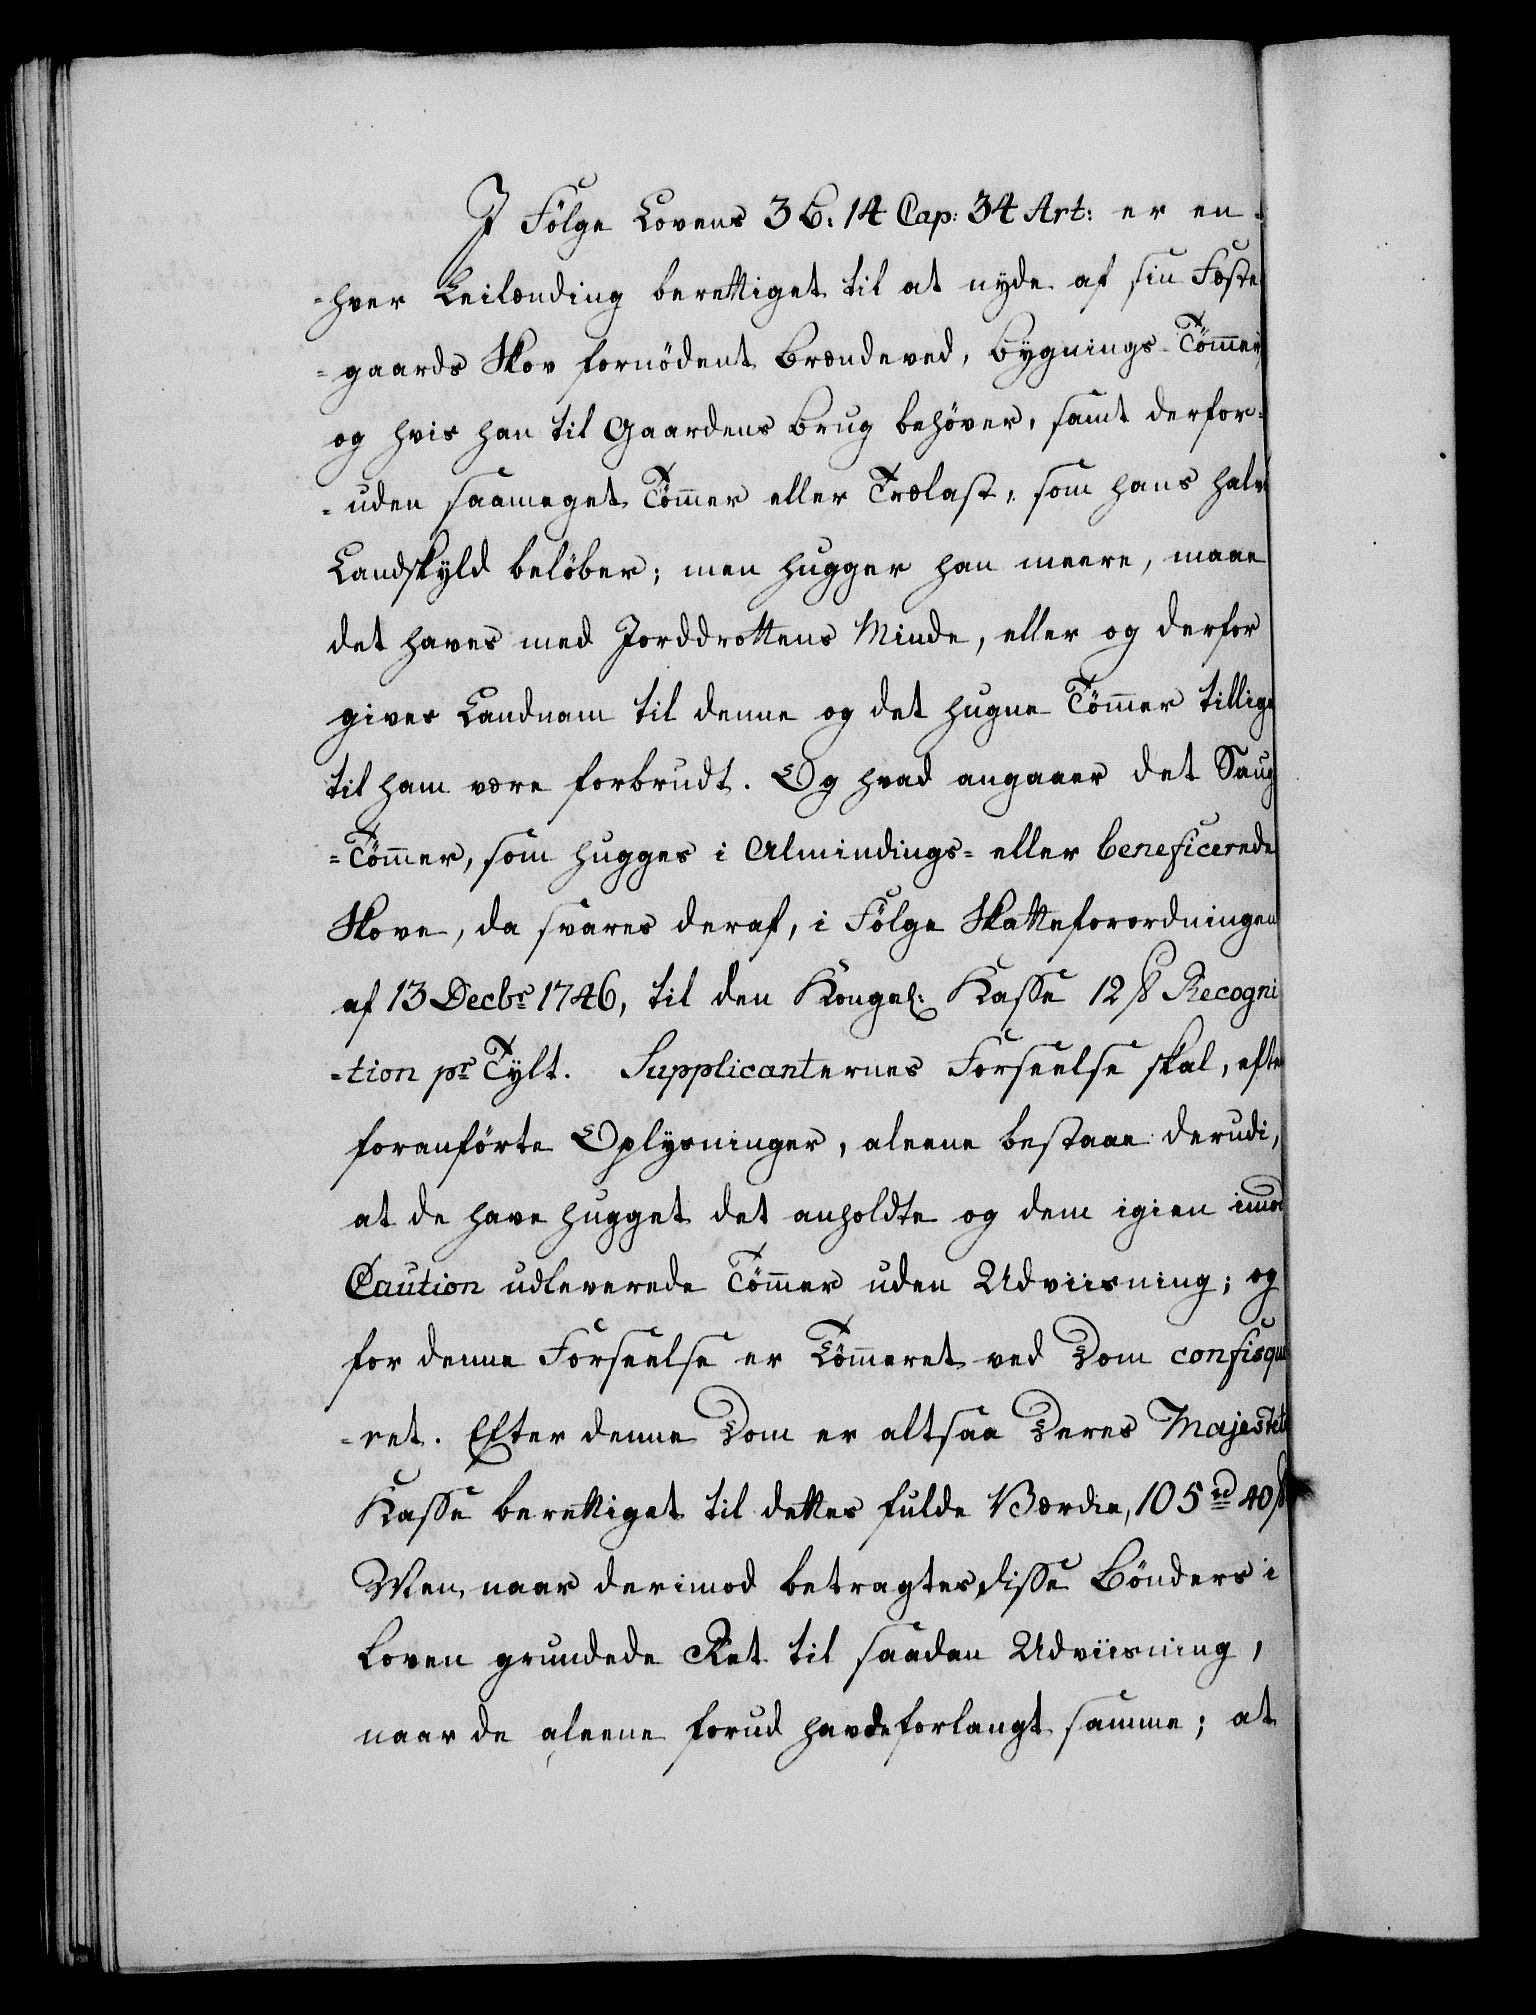 I Følge Lovens 3 B: 14 Cap: 34 Art: er en-
-hver Leilænding berettiget til at nyde af sin Fæste
-gaards Skov fornödent Brændeved, Bygnings-Tömmer,
og hvis han til Gaardens Brug behöver, samt derfor-
-uden saameget Tömmer eller Trælast, som hans halve
Landskyld belöber; men hugger han meere, maae
det haves med Jorddrottens Minde, eller og derfor
gives Landnam til denne og det hugne Tömmer tillige
til ham være forbrudt. Og hvad angaaer det Saug
-Tömmer, som hugges i Almindings- eller beneficerede
Skove, da svares deraf, i Fölge Skatteforordningen
af 13 Decbr 1746, til den Kongel: Kasse 12 ß Recogni
-tion pr Tylt. Supplicanternes Forseelse skal, efter
foranförte Oplysninger, aleene bestaae derudi,
at de have hugget det anholdte og dem igien imod
Caution udleverede Tömmer uden Udviisning; og
for denne Forseelse er Tömmeret ved Dom confisque
-ret. Efter denne Dom er altsaa Deres Majestets
Kasse berettiget til dettes fulde Værdie, 105 rd 40 ß
Men, naar derimod betragtes disse Bönders i
Loven grundede Ret til saadan Udviisning,
naar de aleene forud havde forlangt samme; at